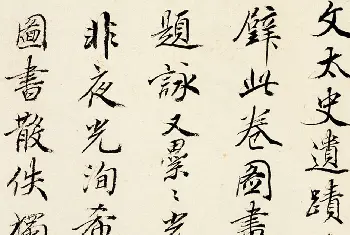 文太史遺蹟
璧此卷圖書
題詠又纍〻
非夜光洵希
圖書散佚獨